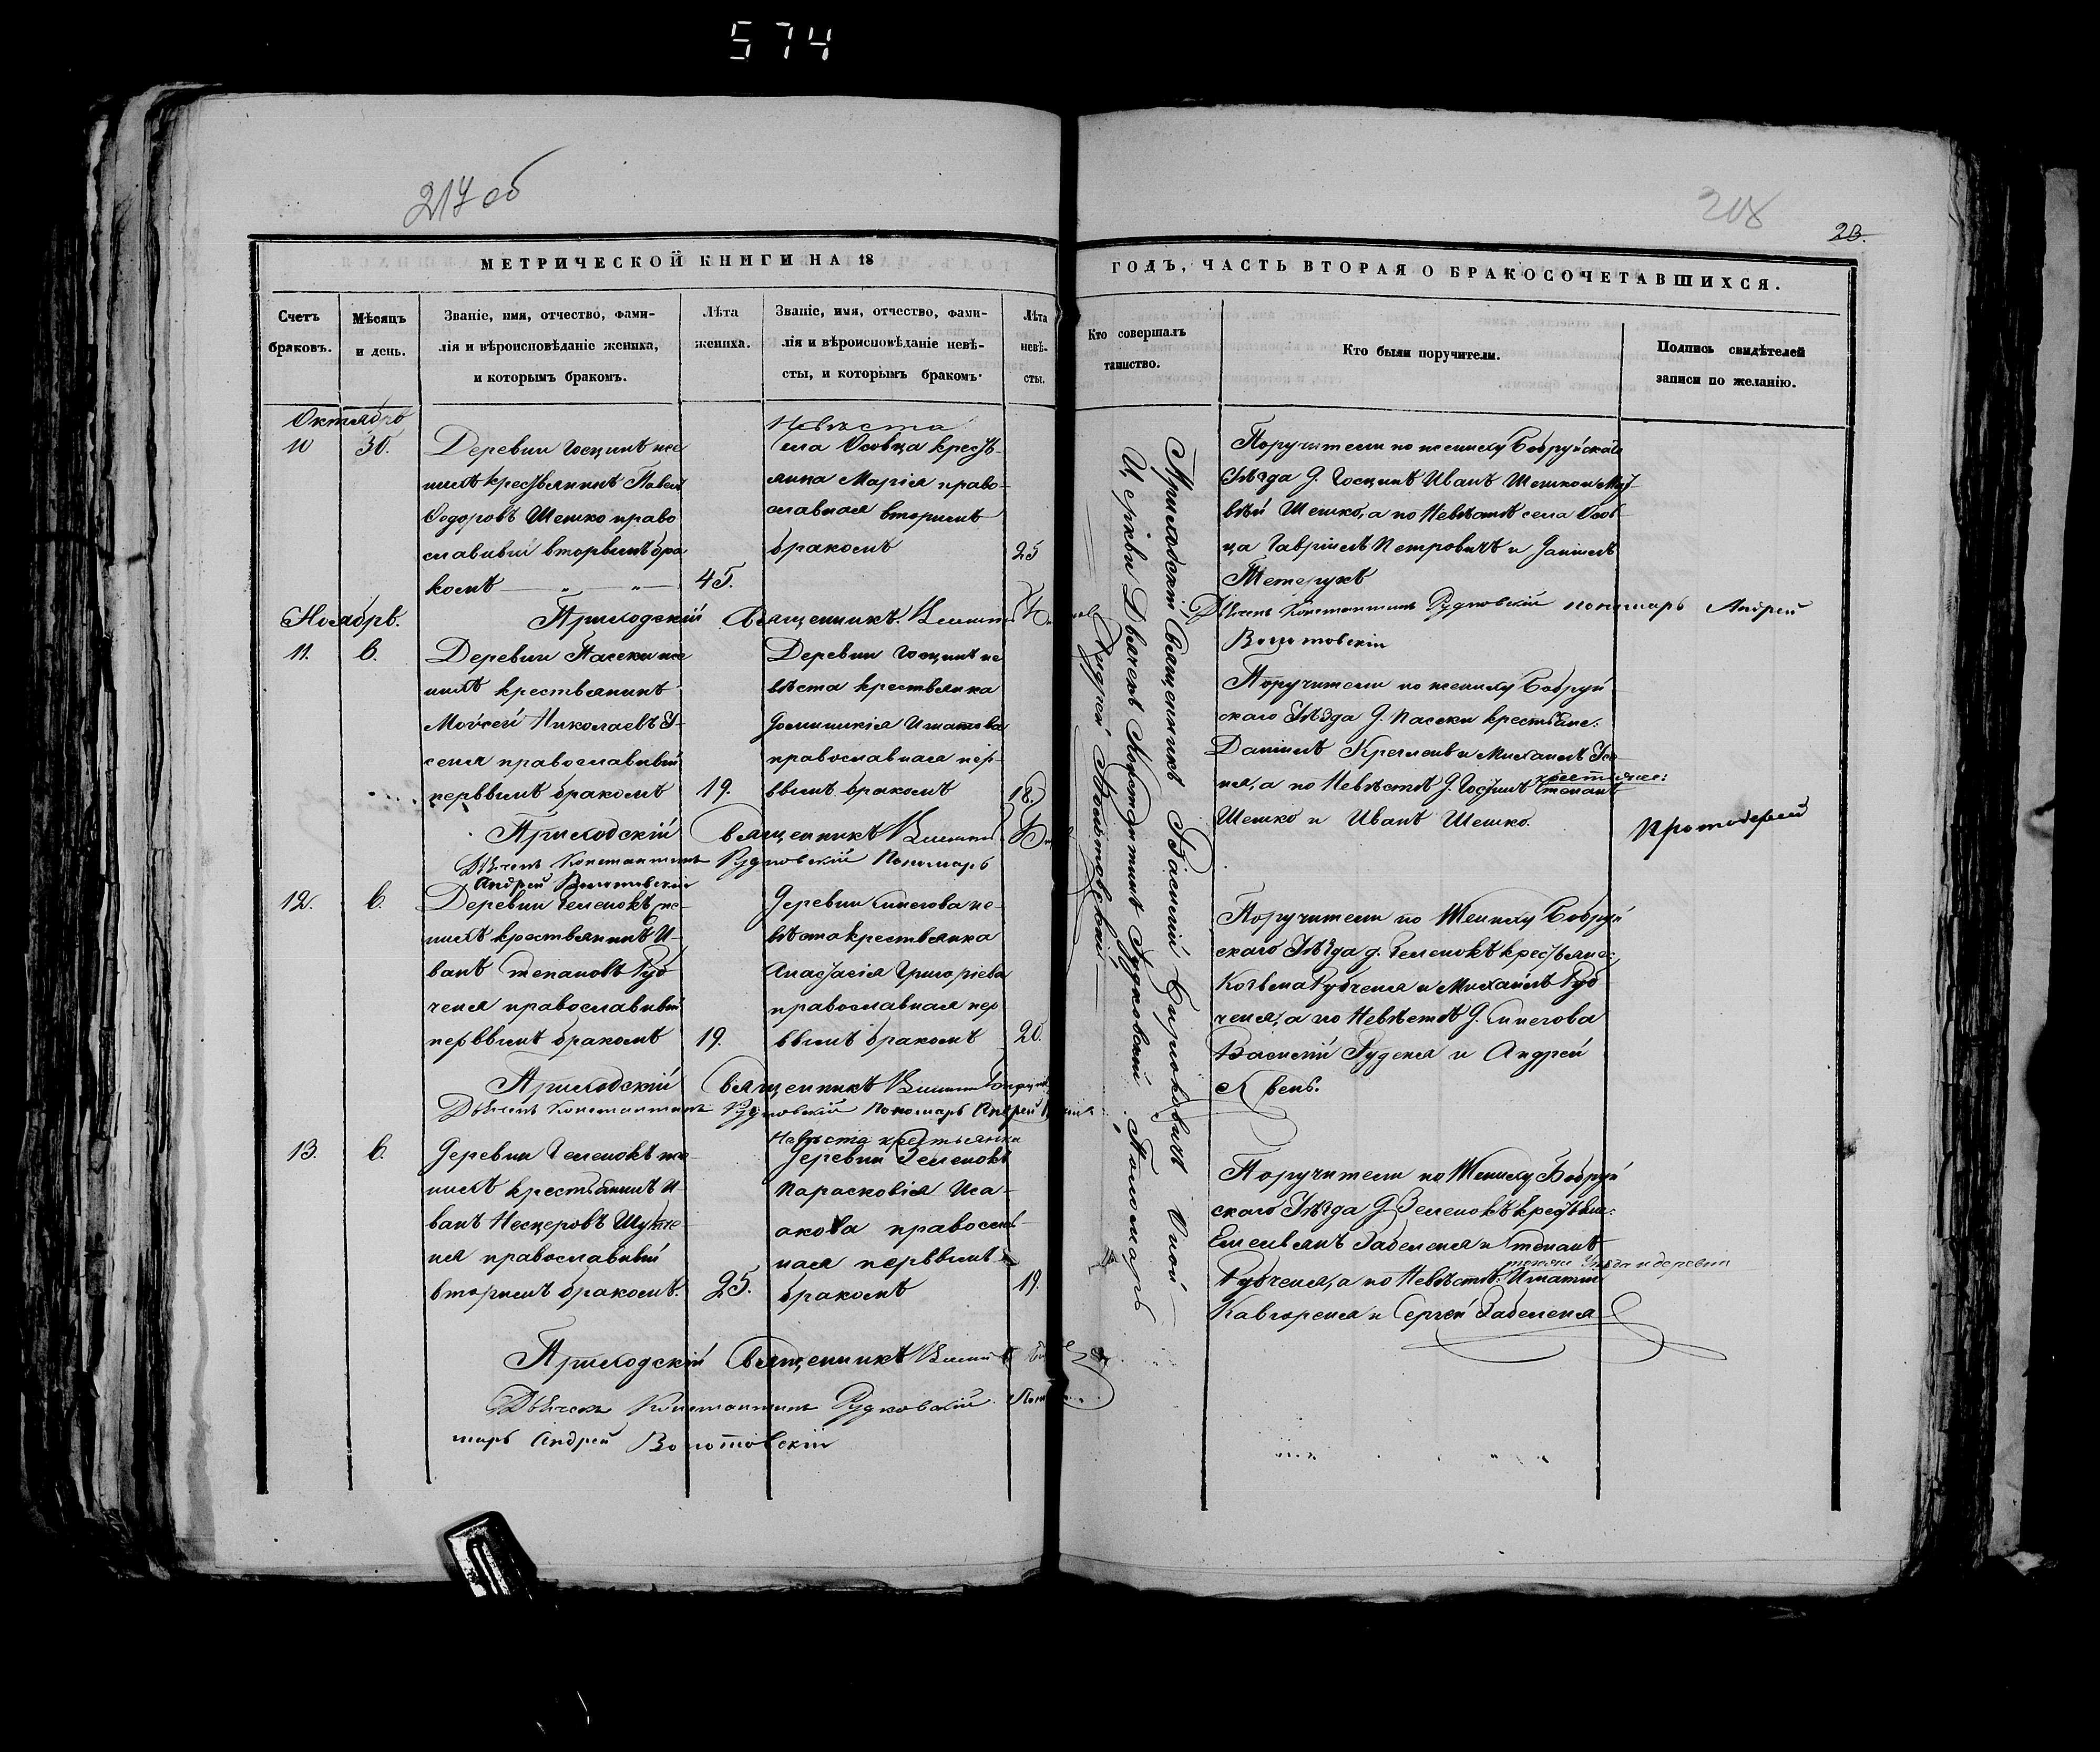 574
217 об
208
23.
МЕТРИЧЕСКОЙ КНИГИ НА 18
ГОДЪ, ЧАСТЬ ВТОРАЯ О БРАКОСОЧЕТАВШИХСЯ.
Счетъ браковъ.
Мѣсяцъ и день.
Званіе, имя, отчество, фами-
лія и вѣроисповѣданіе жениха,
и которымъ бракомъ.
Лѣта жениха.
Званіе, имя, отчество, фами-
лія и вѣроисповѣданіе невѣ-
сты, и которымъ бракомъ.
Лѣта невѣ-
сты.
Кто совершалъ
таинство.
Кто были поручители.
Подпись свидѣтелей
записи по желанію.
Октябрь
10 30.
Деревни Госцинъ же
нихъ крестьянинъ Павелъ
Ѳодоровъ Шешко право
славный вторымъ бра
комъ 45.
Невѣста
села Осовца крестья-
янка Марія право-
славная вторымъ
бракомъ 25
Поручители по жениху Бобруйскаго
Уѣзда д. Госцинъ Иванъ Шешко и Мат
вѣй Шешко, а по Невѣстѣ села Осов
ца Гавріилъ Петровичъ и Даніилъ
Тетерукъ
Приходскій Священникъ
Дьячекъ Константинъ Рудковскій пономарь Андрей
Ноябрь.
11. 6.
Деревни Пасеки же
нихъ крестьянинъ
Мойсей Николаевъ
сеня православный
первымъ бракомъ 19.
Деревни Госцинъ не
вѣста крестьянка
Доминикія Игнатова
православная пер-
вымъ бракомъ 18.
Поручители по жениху Бобруй
скаго Уѣзда д. Пасеки крестьяне:
Даніилъ и Михаилъ
ня, а по Невѣстѣ д. Госцинъ крестьяне: Степанъ
Шешко и Иванъ Шешко.
Протоіерей
Приходскій Священникъ
Дьячекъ Константинъ Рудковскій Пономарь
Андрей
12. 6.
Деревни Зеленокъ же-
нихъ крестьянинъ И-
ванъ Степановъ Руб
ченя православный
первымъ бракомъ 19.
Деревни Синегова не-
вѣста крестьянка
Анастасія Григоріева
православная пер
вымъ бракомъ 20.
Поручители по Жениху Бобруй
скаго Уѣзда д. Зеленокъ крестьяне:
Козьма Рубченя и Михаилъ Руб
ченя, а по Невѣстѣ д. Синегова
Василій Руденя и Андрей
Приходскій Священникъ
Дьячекъ Константинъ Рудковскій Пономарь Андрей
13. 6.
Деревни Зеленокъ же
нихъ крестьянинъ И-
ванъ Несцеровъ
ня православный
вторымъ бракомъ. 25.
Невѣста крестьянка
Деревни Зеленокъ
Парасковія Иса-
акова православ-
ная первымъ
бракомъ 19.
Поручители по Жениху Бобруй
скаго Уѣзда д. Зеленокъ крестьяне:
Емельянъ Забеленя и Степанъ
Рубченя, а по Невѣстѣ тогожъ Уѣзда и деревни Игнатій
и Сергей Забеленя
Приходскій Священникъ
Дьячекъ Константинъ Рудковскій Поно
марь Андрей
Приходскій Священникъ Василій Бирюковичъ Оной
Церкви Дьячекъ Константинъ Рудковскій Пономарь
Андрей